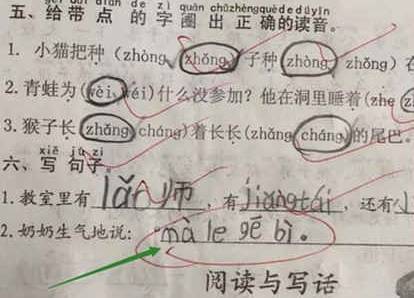 五、给带点的字圈出正确的读音。
1. 小猫把种(zhòng zhǒng)子种(zhòng zhǒng)在
2. 青蛙为(wèi wéi)什么没参加?他在洞里睡着(zhe
3. 猴子长(zhǎng cháng)着长长(zhǎng cháng)的尾巴。
xiě jù zi
六、写句子。
1. 教室里有lǎo师,有jiǎngtái,还有
2. 奶奶生气地说:mà le gē bì。
阅读与写话